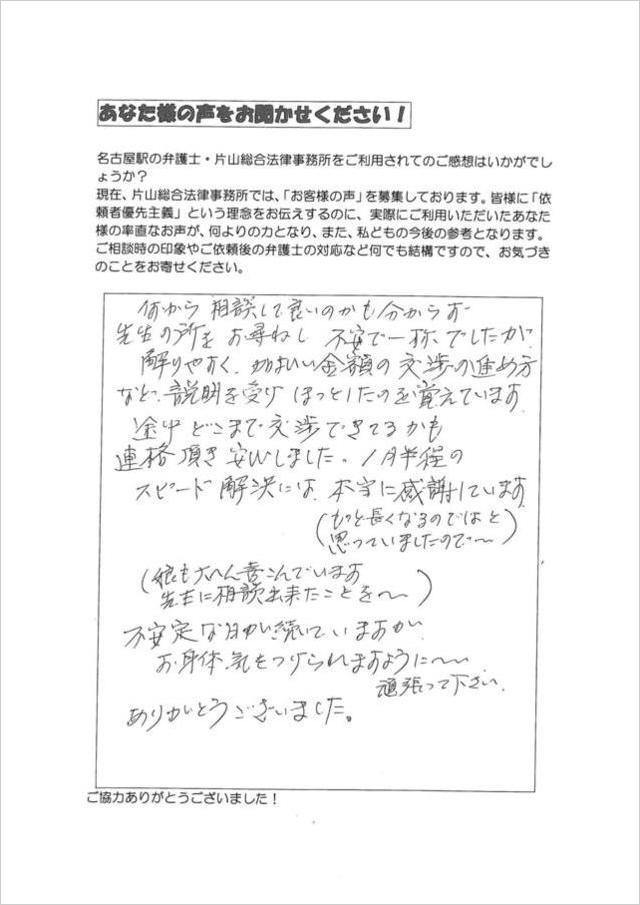 あなた様の声をお聞かせください！
名古屋駅の弁護士・片山総合法律事務所をご利用されてのご感想はいかがでし
ょうか？
現在、片山総合法律事務所では、「お客様の声」を募集しております。皆様に「依
頼者優先主義」という理念をお伝えするのに、実際にご利用いただいたあなた
様の率直なお声が、何よりの力となり、また、私どもの今後の参考となります。
ご相談時の印象やご依頼後の弁護士の対応など何でも結構ですので、お気づき
のことをお寄せください。
何から相談して良いのかも分からず
先生の所をお尋ねし 不安で一杯でしたが
解りやすく、細かい金額の交渉の進め方
など、説明を受け ほっとしたのを覚えています
途中どこまで交渉できてるかも
連絡頂き安心しました。1月半程の
スピード解決には、本当に感謝しています
(もっと長くなるのではと
思っていましたので〜)
(娘も大へん喜こんでいます
先生に相談出来たことを〜)
不安定な日が続いていますが、
お身体、気をつけられますように〜
頑張って下さい。
ありがとうございました。
ご協力ありがとうございました！